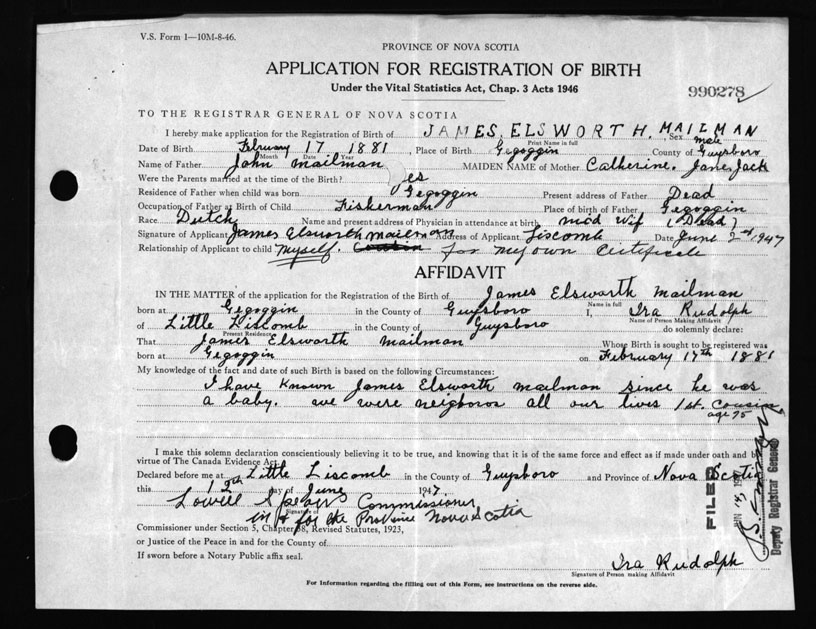 V.S. Form 1—10M-8-46.
PROVINCE OF NOVA SCOTIA
APPLICATION FOR REGISTRATION OF BIRTH
Under the Vital Statistics Act, Chap. 3 Acts 1946
990278
TO THE REGISTRAR GENERAL OF NOVA SCOTIA
I hereby make application for the Registration of Birth of JAMES. ELSWORTH. MAILMAN
Print Name in full Sex male
Date of Birth February 17 1881, Place of Birth Gegoggin County of Guysboro
Month Date Year
Name of Father John Mailman MAIDEN NAME of Mother Catherine. Jane Jack
Were the Parents married at the time of Birth? yes
Residence of Father when child was born Gegoggin Present address of Father Dead
Occupation of Father at Birth of Child Fisherman Place of birth of Father Gegoggin
Race Dutch Name and present address of Physician in attendance at birth mid Wif (Dead)
Signature of Applicant James Elsworth Mailman Address of Applicant Liscomb Date June 2nd 1947
Relationship of Applicant to child Myself. Cousin for my own Certificate
AFFIDAVIT
IN THE MATTER of the application for the Registration of the Birth of James Elsworth Mailman
Name in full
born at Gegoggin in the County of Guysboro I, Ira Rudolph
Name of Person Making Affidavit
of Little Liscomb in the County of Guysboro do solemnly declare:
Present Residence
That James Elsworth Mailman Whose Birth is sought to be registered was
born at Gegoggin on February 17th 1881
My knowledge of the fact and date of such Birth is based on the following Circumstances:
I have known James Elsworth Mailman since he was
a baby. we were neigbors all our lives 1st. Cousin
age 75
I make this solemn declaration conscientiously believing it to be true, and knowing that it is of the same force and effect as if made under oath and by
virtue of The Canada Evidence Act.
Declared before me at Little Liscomb in the County of Guysboro and Province of Nova Scotia
this 2nd day of June 1947.
Lowell Commissioner
Signature of
in & for the Province Nova Scotia
Commissioner under Section 5, Chapter 38, Revised Statutes, 1923,
or Justice of the Peace in and for the County of
If sworn before a Notary Public affix seal.
Ira Rudolph
Signature of Person making Affidavit
For Information regarding the filling out of this Form, see instructions on the reverse side.
FILED
Deputy Registrar General